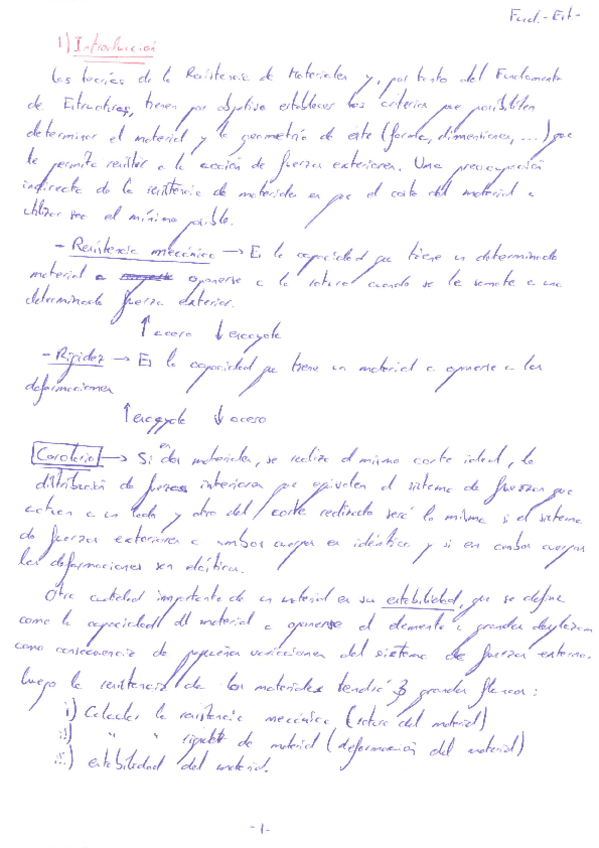 Fund.-Est-
1) Introducción
Las teorías de la Resistencia de Materiales y, por tanto del Fundamento
de Estructuras, tienen por objetivo establecer los criterios que posibiliten
determinar el material y la geometría de éste (forma, dimensiones, ...) que
le permita resistir a la acción de fuerzas exteriores. Una preocupación
indirecta de la resistencia de materiales es que el coste del material a
utilizar sea el mínimo posible.
- Resistencia mecánica → Es la capacidad que tiene un determinado
material a oponerse a la rotura cuando se le somete a una
determinada fuerza exterior.
↑ acero ↓ escayola
- Rigidez → Es la capacidad que tiene un material a oponerse a las
deformaciones
↑ escayola ↓ acero
Corolario → Si en dos materiales, se realiza el mismo corte ideal, la
distribución de fuerzas interiores que equivalen al sistema de fuerzas que
actúan a un lado y otro del corte realizado será la misma si el sistema
de fuerzas exteriores a ambos cuerpos es idéntico y si en ambos cuerpos
las deformaciones son elásticas.
Otra cualidad importante de un material es su estabilidad, que se define
como la capacidad del material a oponerse el elemento a grandes desplazam
como consecuencia de pequeñas variaciones del sistema de fuerzas externo.
Luego la resistencia de los materiales tendrá 3 grandes flancos:
i) Calcular la resistencia mecánica (rotura del material)
ii) " " rigidez de material (deformación del material)
iii) estabilidad del material.
-1-